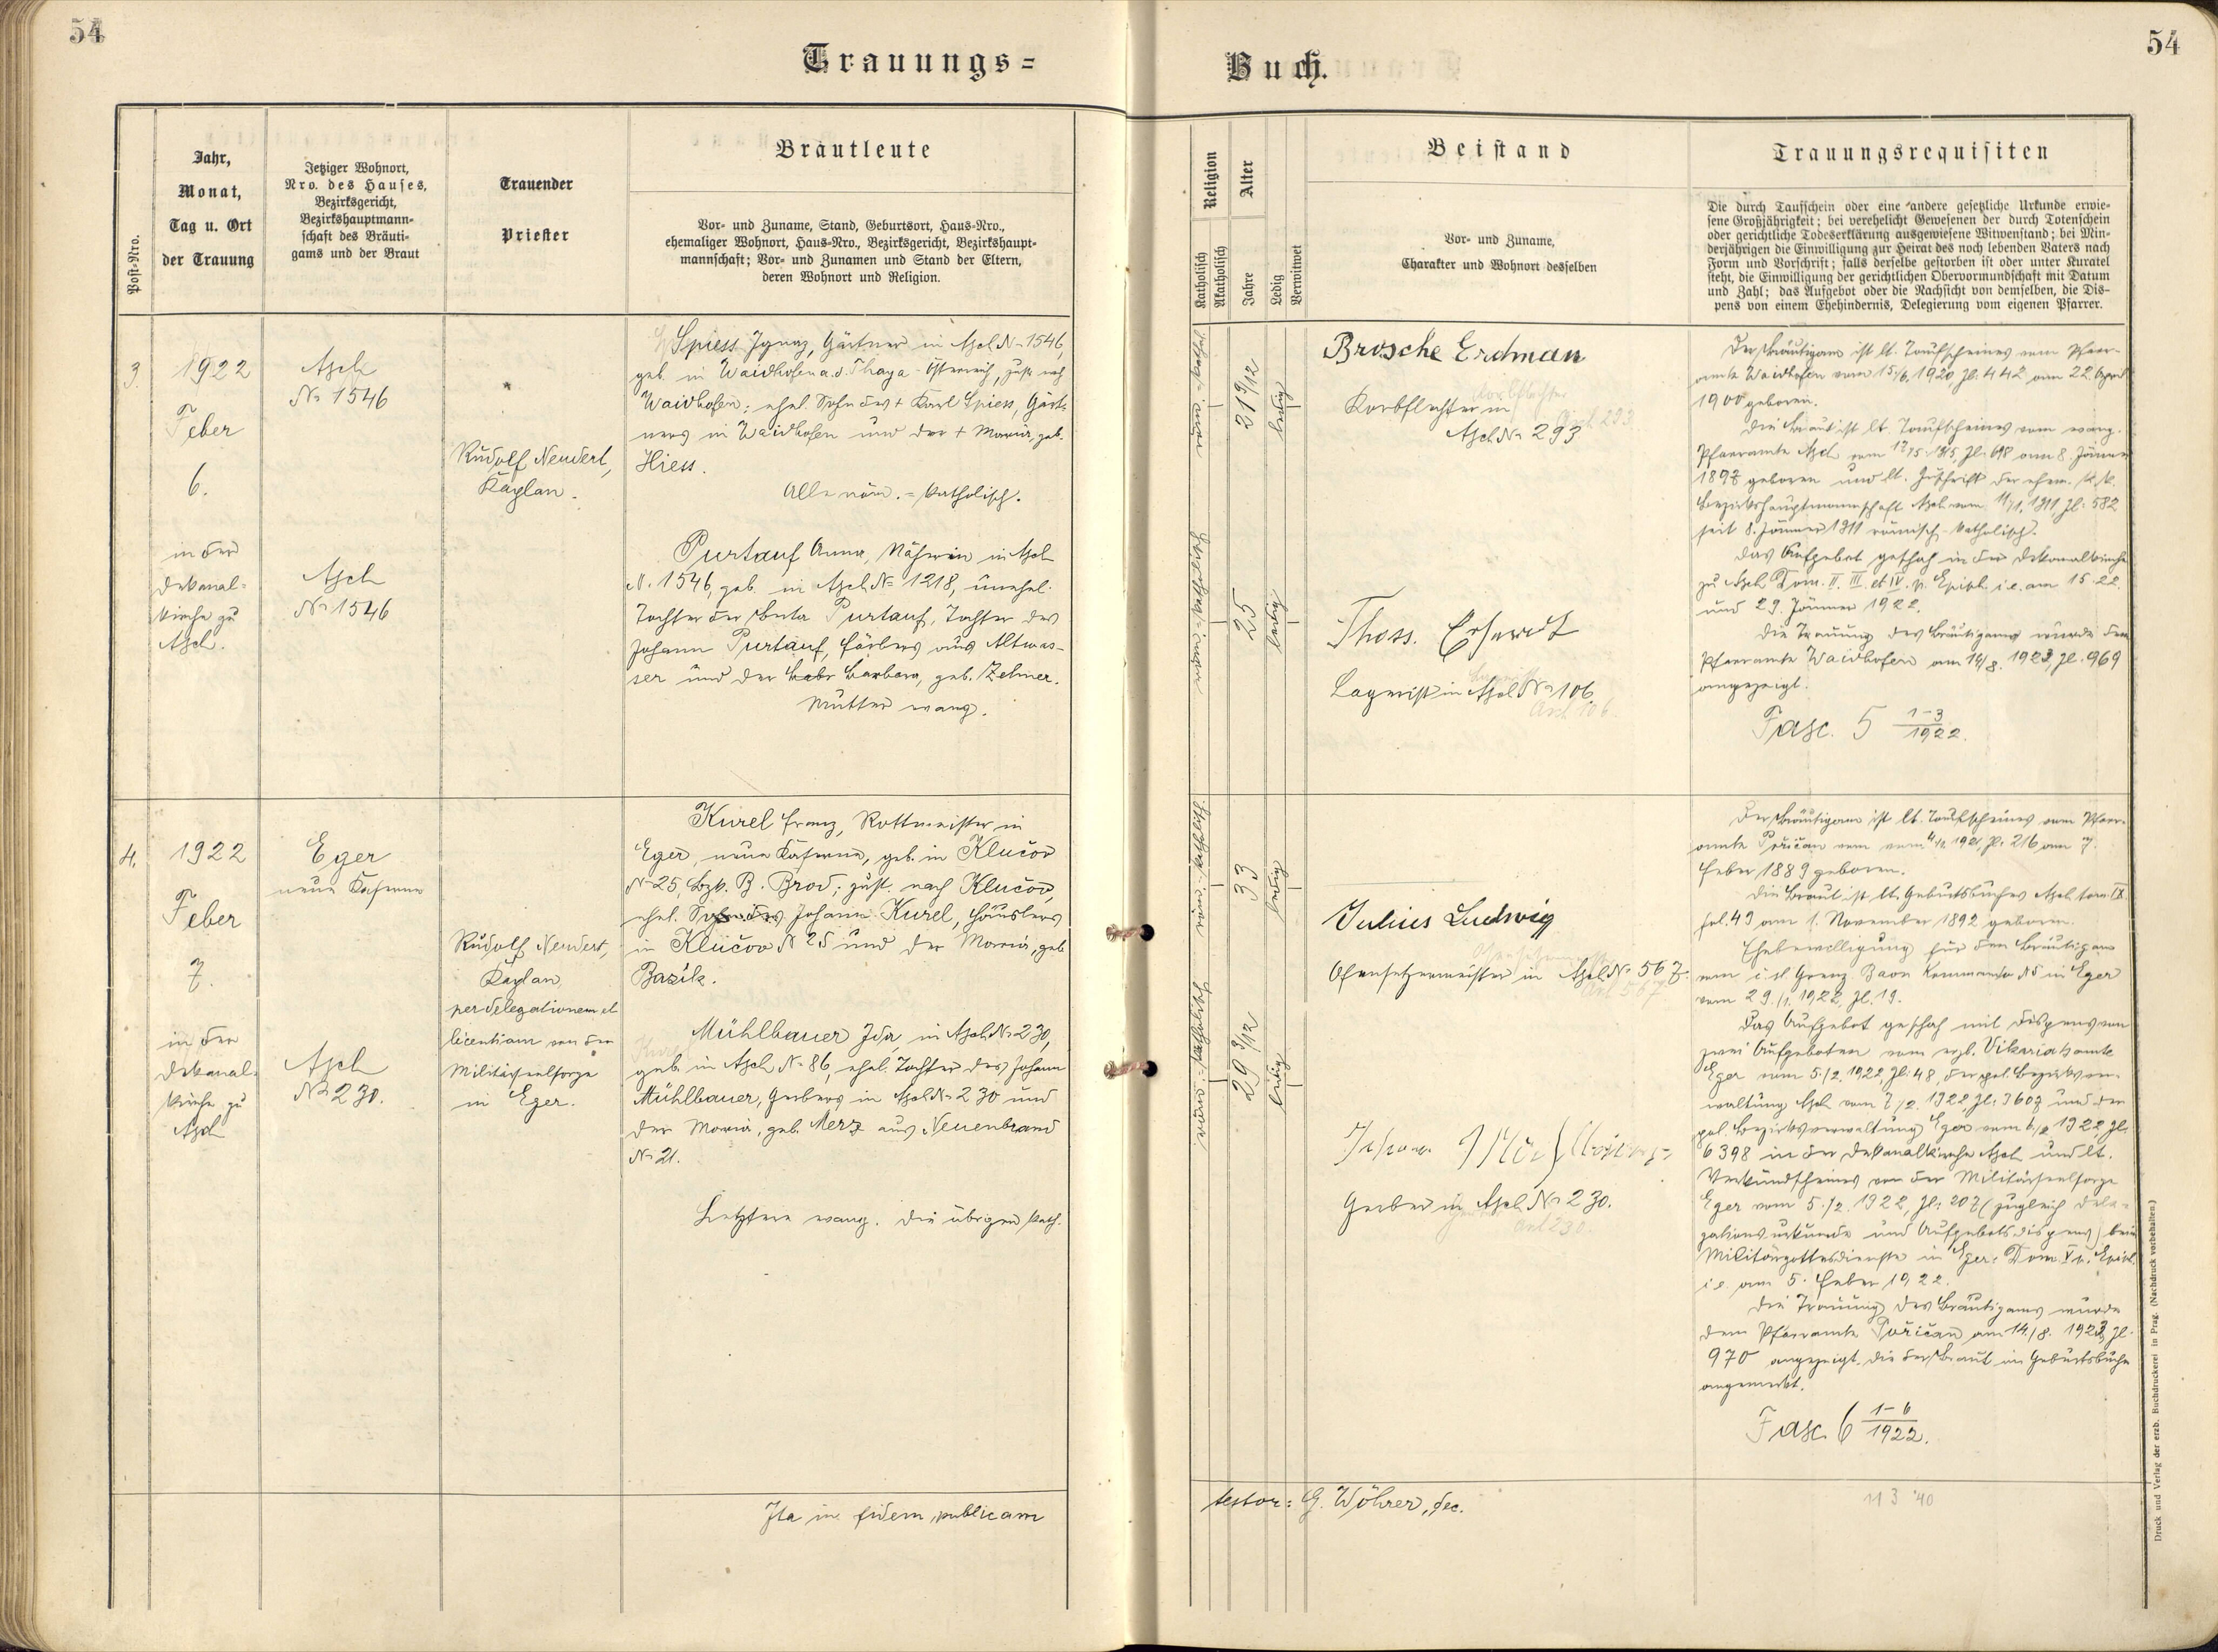 54
Trauungs=
Post-Nro.
Jahr,
Monat,
Tag u. Ort
der Trauung
Jetziger Wohnort,
Nro. des Hauses,
Bezirksgericht,
Bezirkshauptmann-
schaft des Bräuti-
gams und der Braut
Trauender
Priester
Bräutleute
Vor- und Zuname, Stand, Geburtsort, Haus-Nro.,
ehemaliger Wohnort, Haus-Nro., Bezirksgericht, Bezirkshaupt-
mannschaft; Vor- und Zunamen und Stand der Eltern,
deren Wohnort und Religion.
3.
1922
Feber
6.
in der
Dekanal-
kirche zu
Asch.
Asch
No 1546
Asch
No 1546
Rudolf Neudert,
Kaplan.
Spiess Ignaz, Gärtner in Asch No 1546,
geb. in Waidhofen a. d. Thaya - Österreich, zust. nach
Waidhofen; ehel. Sohn des + Karl Spiess, Gärt-
ners in Waidhofen und der + Maria, geb.
Hiess.
Alle röm. = katholisch.
Purtauf Anna, Näherin in Asch
N. 1546, geb. in Asch No 1218, unehel.
Tochter der Berta Purtauf, Tochter des
Johann Purtauf, Färbers aus Altwas-
ser und der Barbara, geb. Zehner.
Mutter evang.
4.
1922
Feber
7.
in der
Dekanal-
kirche zu
Asch
Eger
neue Kaserne
Asch
No 230.
Rudolf Neudert,
Kaplan,
per delegationem et
licentiam von der
Militärseelsorge
in Eger.
Kurel Franz, Rottmeister in
Eger, neue Kaserne, geb. in Klučov
No 25, Bzk. B. Brod; zust. nach Klučov,
ehel. Sohn des Johann Kurel, Häuslers
in Klučov N 25 und der Maria, geb.
Bazik.
Mühlbauer Ida, in Asch No 230,
geb. in Asch No 86, ehel. Tochter des Johann
Mühlbauer, Gerbers in Asch No 230 und
der Maria, geb. Merz aus Neuenbrand
No 21.
Letztere evang. die übrigen kath.
Ita in fidem publicam
54
Buch.
Religion
Katholisch
Akatholisch
Alter
Jahre
Ledig
Verwitwet
Beistand
Vor- und Zuname,
Charakter und Wohnort desselben
Trauungsrequisiten
Die durch Taufschein oder eine andere gesetzliche Urkunde erwie-
sene Großjährigkeit; bei verehelicht Gewesenen der durch Totenschein
oder gerichtliche Todeserklärung ausgewiesene Witwenstand; bei Min-
derjährigen die Einwilligung zur Heirat des noch lebenden Vaters nach
Form und Vorschrift; falls derselbe gestorben ist oder unter Kuratel
steht, die Einwilligung der gerichtlichen Obervormundschaft mit Datum
und Zahl; das Aufgebot oder die Nachsicht von demselben, die Dis-
pens von einem Ehehindernis, Delegierung vom eigenen Pfarrer.
21 9/12
ledig
25
ledig
Brosche Erdman
Korbflechter in
Asch No 293
Thoss. Erhardt
Lagerist in Asch No 106
Der Bräutigam ist lt. Taufscheines vom Pfarr-
amte Waidhofen vom 15/6. 1920 Zl: 442 am 22. April
1900 geboren.
Die Braut ist lt. Taufscheines vom evang.
Pfarramte Asch vom Zl: 698 am 8. Jänner
1897 geboren und lt. Zuschrift der ehem. k. k.
Bezirkshauptmannschaft Asch vom 11/1. 1911 Zl: 582
seit 8. Jänner 1911 römisch-katholisch.
Das Aufgebot geschah in der Dekanalkirche
zu Asch Dom. II. III. et IV. p. Epiph. i. e. am 15. 22.
und 29. Jänner 1922.
Die Trauung des Bräutigams wurde dem
Pfarramte Waidhofen am 14/8. 1923, Zl. 969
angezeigt.
Fasc. 5 1-3/1922.
33
ledig
29 3/12
ledig
Julius Ludwig
Ofensetzermeister in Asch No 567.
Johann
Gerber in Asch No 230.
Der Bräutigam ist lt. Taufscheines vom Pfarr-
amte Poričan vom 1921, Zl. 216 am 7.
Feber 1889 geboren.
Die Braut ist lt. Geburtsbuches Asch tom. IX.
fol. 49 am 1. November 1892 geboren.
Ehebewilligung für den Bräutigam
vom č. sl. Grenz Baon Kommando N 5 in Eger
vom 29./1. 1922, Zl. 19.
Das Aufgebot geschah mit Dispens von
zwei Aufgeboten vom erzb. Vikariatsamte
Eger vom 5./2. 1922, Zl: 48, der pol. Bezirksver-
waltung Asch vom 7/2. 1922, Zl: 3607 und der
pol. Bezirksverwaltung Eger vom 6./2. 1922, Zl.
6398 in der Dekanalkirche Asch und lt.
Verkündscheines von der Militärseelsorge
Eger vom 5./2. 1922, Zl: 207 (zugleich Dele-
gationsurkunde und Aufgebotsdispens) beim
Militärgottesdienste in Eger: Dom. V p. Epiph.
i. e. am 5. Feber 1922.
Die Trauung des Bräutigams wurde
dem Pfarramte Poričan am 14./8. 1923, Zl.
970 angezeigt, die der Braut im Geburtsbuche
angemerkt.
Fasc. 6 1-6/1922.
testor: G. Wöhrer, dec.
11 3 '40
Druck und Verlag der erzb. Buchdruckerei in Prag. (Nachdruck vorbehalten.)